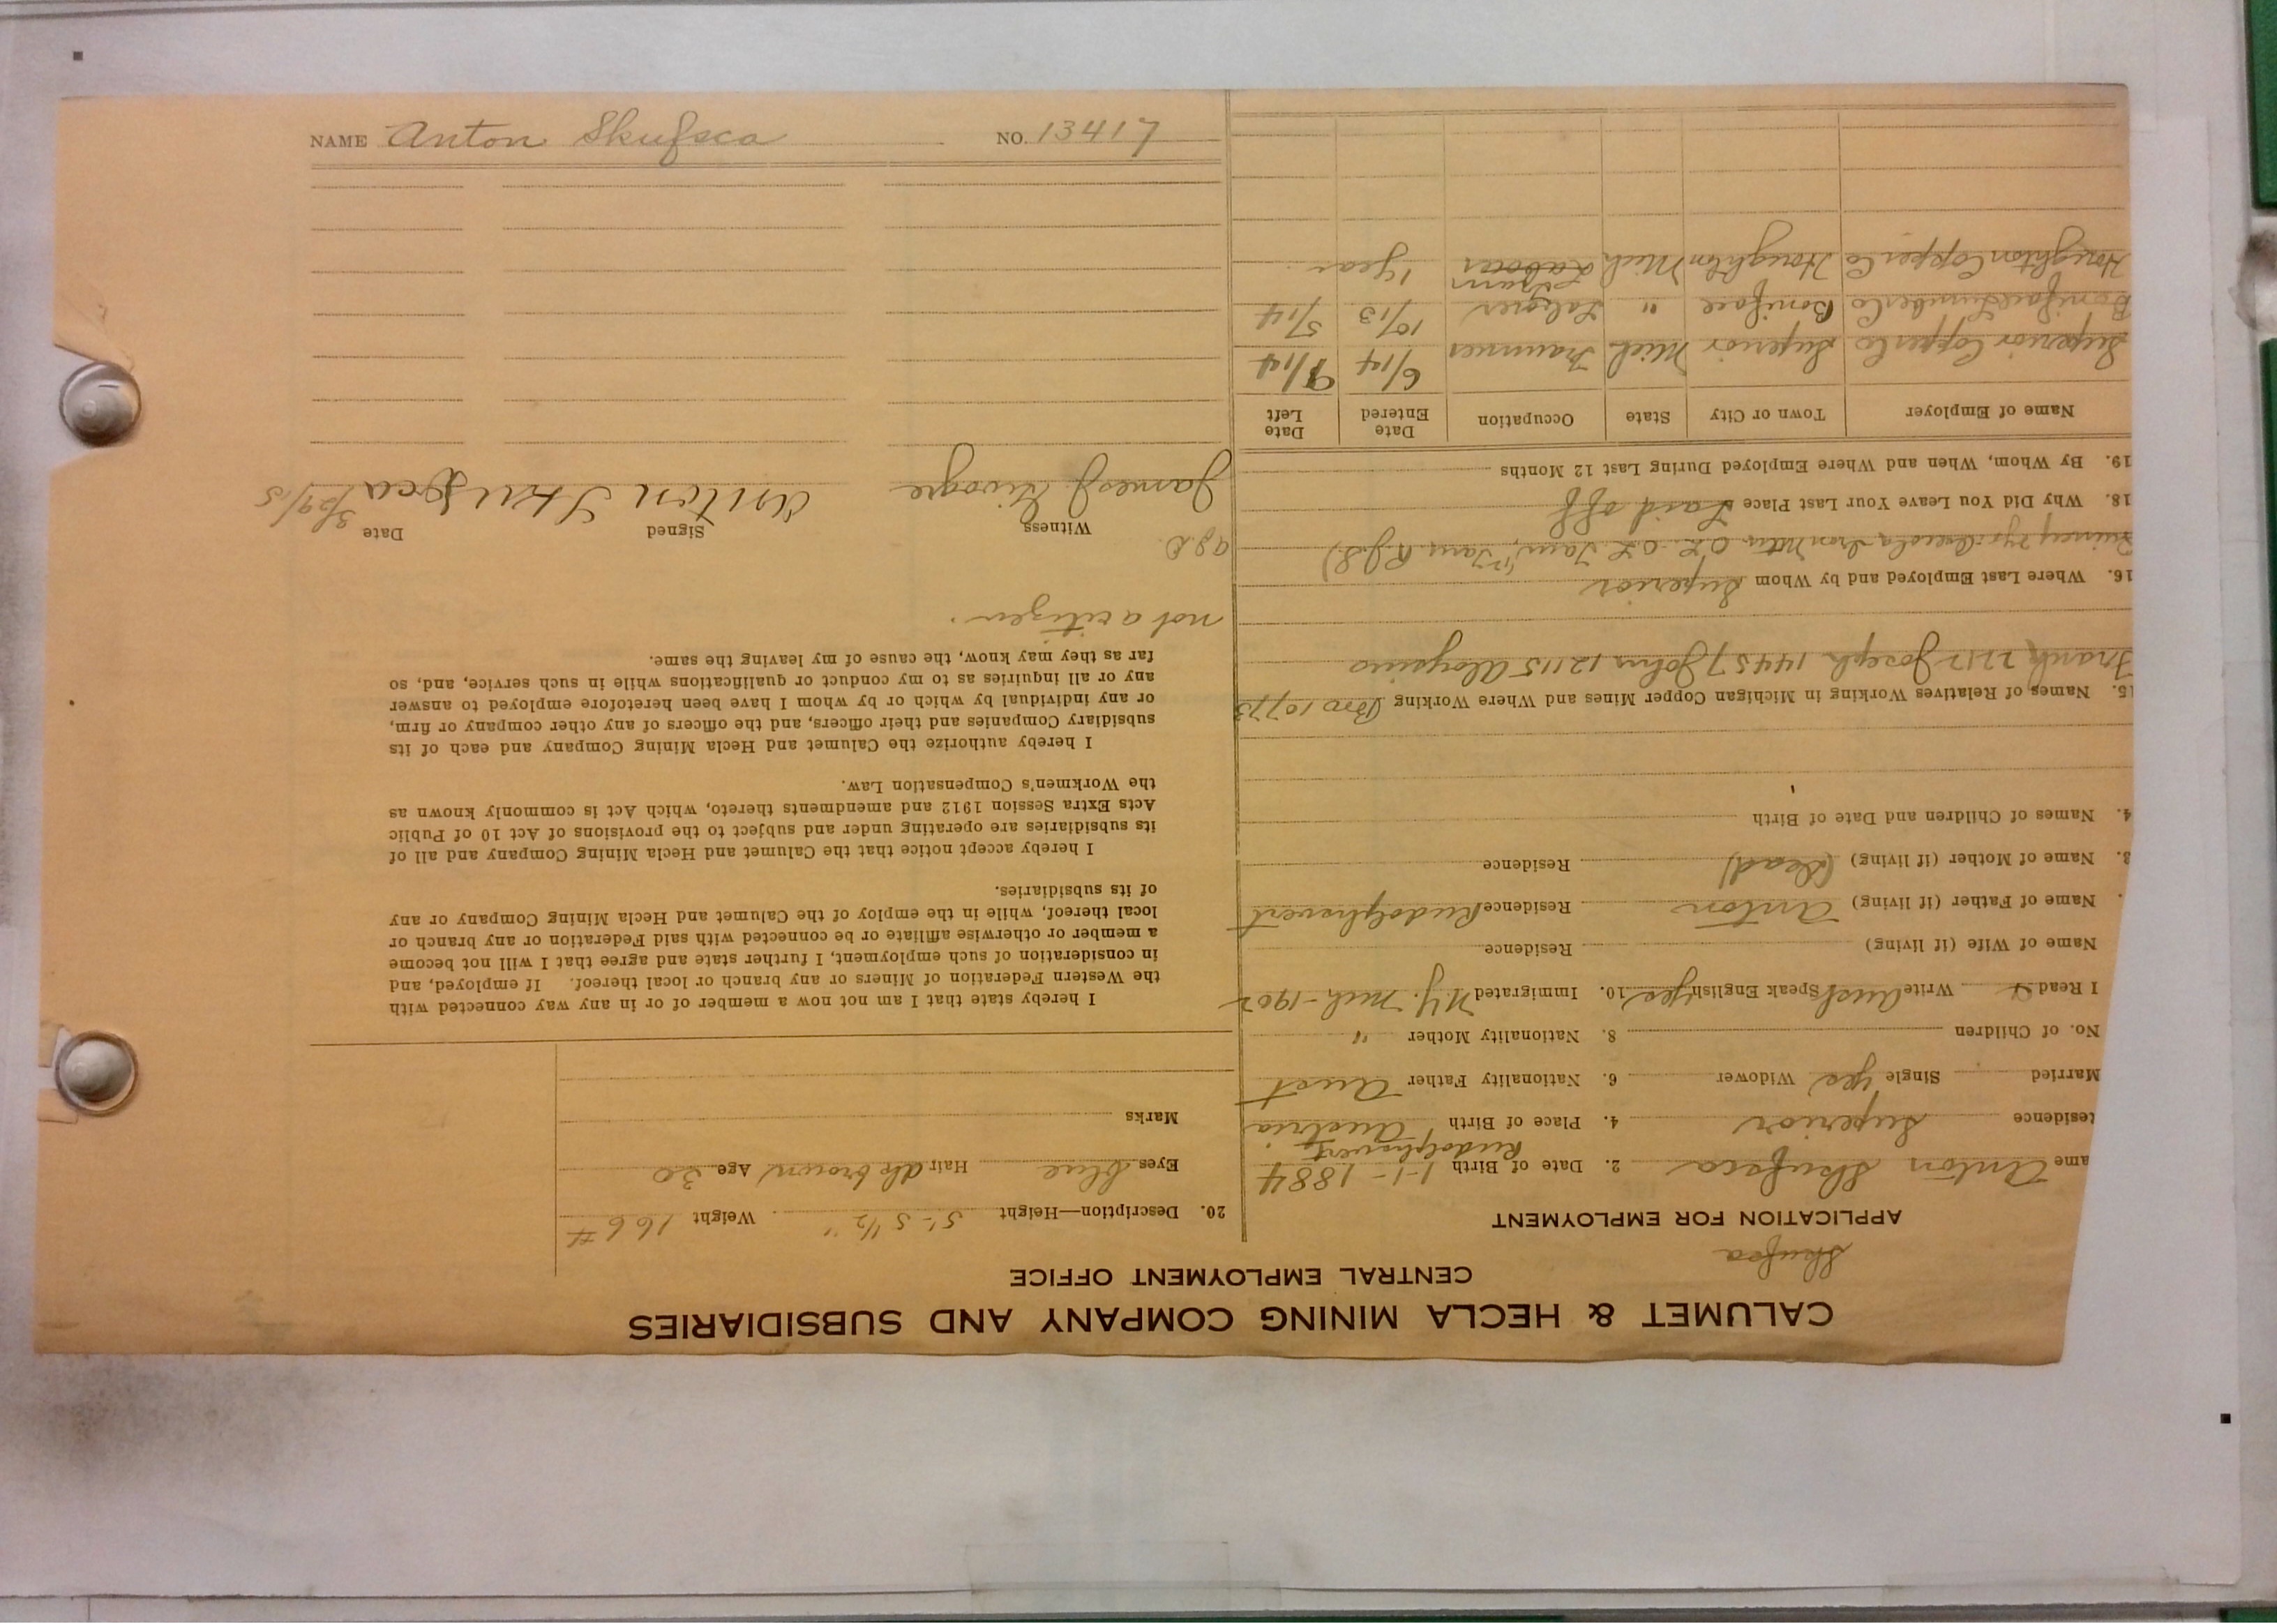 NAME Anton Skufsca NO. 13417
CALUMET & HECLA MINING COMPANY AND SUBSIDIARIES
CENTRAL EMPLOYMENT OFFICE
Skufca
APPLICATION FOR EMPLOYMENT
ame Anton Skufsca 2. Date of Birth 1-1-1884
Rudolphswert
tesidence Superior 4. Place of Birth Austria
Married Single yes Widower 6. Nationality Father Aust
No. of Children 8. Nationality Mother "
I Read Write Aust Speak English yes 10. Immigrated N.Y. Mich - 1902
Name of Wife (if living) Residence
. Name of Father (if living) Anton Residence Rudolphswert
3. Name of Mother (if living) (Dead) Residence
4. Names of Children and Date of Birth
15. Names of Relatives Working in Michigan Copper Mines and Where Working Bro 10773
Frank 2212 Joseph 14457 John 12115 Aloysius
16. Where Last Employed and by Whom Superior
Quincy Osceola
18. Why Did You Leave Your Last Place Laid off
19. By Whom, When and Where Employed During Last 12 Months
Name of Employer Town or City State Occupation Date Entered Date Left
Superior Copper Co Superior Mich Trammer 6/14 9/14
Boniface Lumber Co Boniface " Laborer 10/13 5/14
Tram
Houghton Copper Co Houghton Mich Labour 1 year
20. Description—Height 5'-5 1/2" Weight 166 #
Eyes blue Hair dk brown Age 30
Marks
I hereby state that I am not now a member of or in any way connected with
the Western Federation of Miners or any branch or local thereof. If employed, and
in consideration of such employment, I further state and agree that I will not become
a member or otherwise affiliate or be connected with said Federation or any branch or
local thereof, while in the employ of the Calumet and Hecla Mining Company or any
of its subsidiaries.
I hereby accept notice that the Calumet and Hecla Mining Company and all of
its subsidiaries are operating under and subject to the provisions of Act 10 of Public
Acts Extra Session 1912 and amendments thereto, which Act is commonly known as
the Workmen's Compensation Law.
I hereby authorize the Calumet and Hecla Mining Company and each of its
subsidiary Companies and their officers, and the officers of any other company or firm,
or any individual by which or by whom I have been heretofore employed to answer
any or all inquiries as to my conduct or qualifications while in such service, and, so
far as they may know, the cause of my leaving the same.
not a citizen.
Witness Signed Date
James J. Anton Skufca 3/29/15